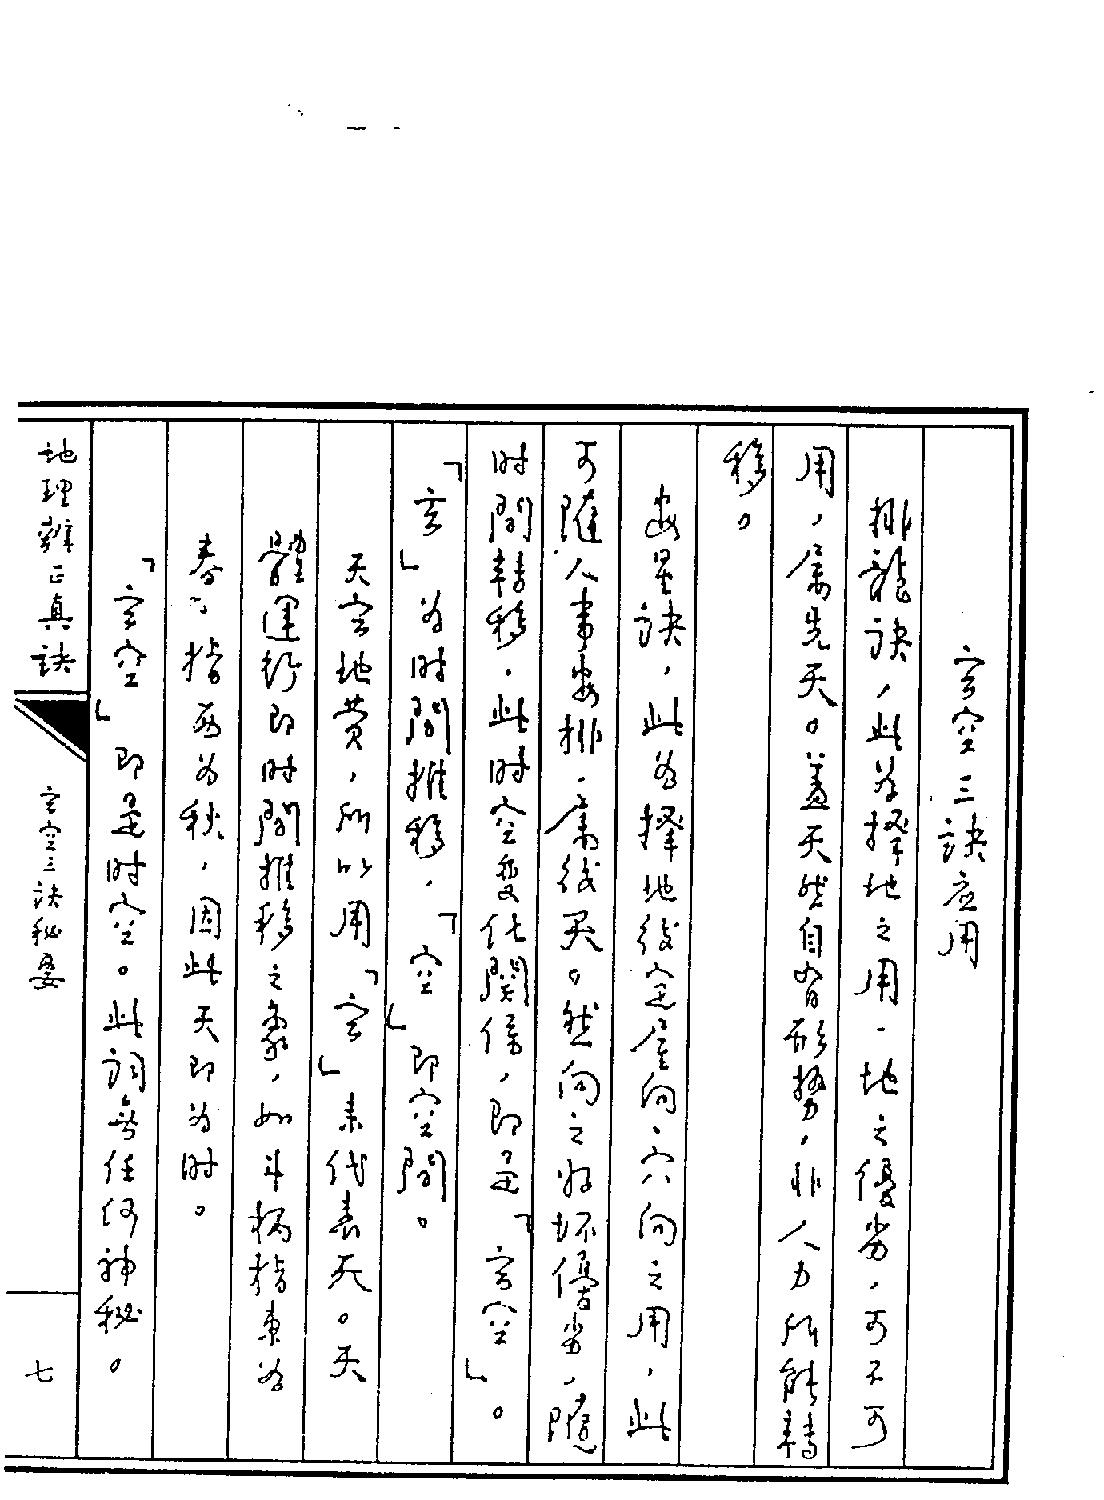 玄空三訣应用
排龍訣，此为擇地之用，地之優劣，可不可
用，属先天。蓋天然自有形势，非人力所能轉
移。
安星訣，此为擇地後定屋向，穴向之用，此
可隨人事安排，属後天。然向之好坏優劣，隨
时間轉移，此时空变化関係，即是「玄空」。
「玄」为时間推移，「空」即空間。
天玄地黄，所以用「玄」来代表天。天
體運行即时間推移之象，如斗柄指東为
春，指西为秋，因此天即为时。
「玄空」即是时空。此詞無任何神秘。
地理辨正真訣
玄空三訣秘要
七